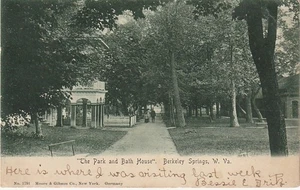 "The Park and Bath House". Berkeley Springs, W. Va.
Here is where I was visiting last week.
Bessie E. Birk
Rivers & Gibman Co., New York. Germany